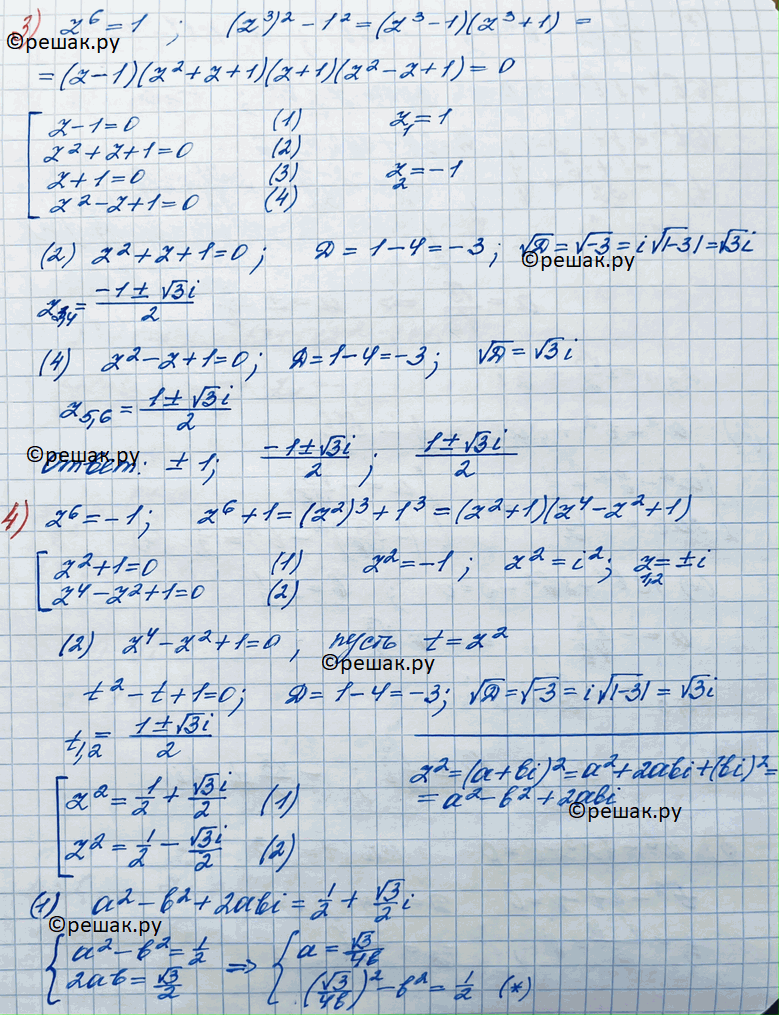 3) z⁶ = 1 ; (z³)² − 1² = (z³ − 1)(z³ + 1) =
©решак.ру
= (z − 1)(z² + z + 1)(z + 1)(z² − z + 1) = 0
z − 1 = 0 (1) z₁ = 1
z² + z + 1 = 0 (2)
z + 1 = 0 (3) z₂ = −1
z² − z + 1 = 0 (4)
(2) z² + z + 1 = 0 ; D = 1 − 4 = −3 ; √D = √−3 = i√|−3| = √3i
©решак.ру
z₃,₄ = (−1 ± √3i)/2
(4) z² − z + 1 = 0 ; D = 1 − 4 = −3 ; √D = √3i
z₅,₆ = (1 ± √3i)/2
©решак.ру
Ответ: ± 1; (−1 ± √3i)/2 ; (1 ± √3i)/2
4) z⁶ = −1 ; z⁶ + 1 = (z²)³ + 1³ = (z² + 1)(z⁴ − z² + 1)
z² + 1 = 0 (1) z² = −1 ; z² = i² ; z₁,₂ = ± i
z⁴ − z² + 1 = 0 (2)
(2) z⁴ − z² + 1 = 0 , пусть t = z²
©решак.ру
t² − t + 1 = 0 ; D = 1 − 4 = −3 ; √D = √−3 = i√|−3| = √3i
t₁,₂ = (1 ± √3i)/2
z² = (a + bi)² = a² + 2abi + (bi)² =
= a² − b² + 2abi
©решак.ру
z² = 1/2 + √3i/2 (1)
z² = 1/2 − √3i/2 (2)
(1) a² − b² + 2abi = 1/2 + √3/2 i
©решак.ру
a² − b² = 1/2 ⇒ a = √3/4b
2ab = √3/2 (√3/4b)² − b² = 1/2 (*)